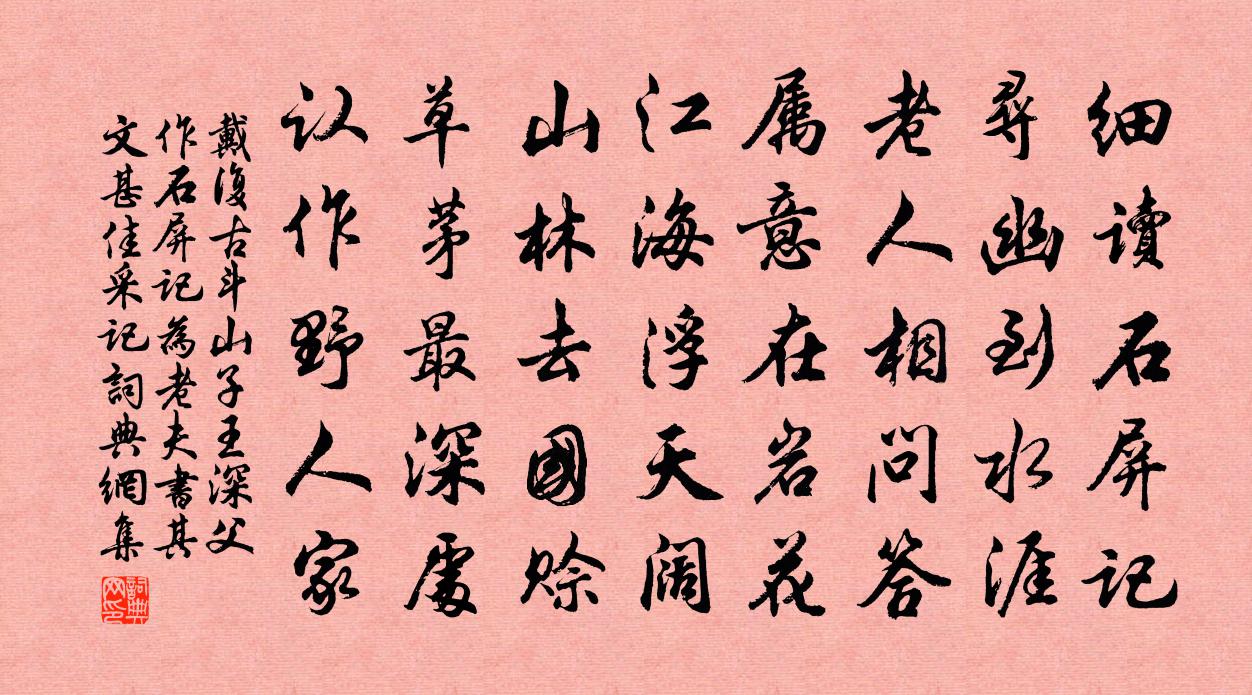 细读石屏记
尋幽到水涯
老人相问答
属意在岩花
江海浮天阔
山林去國赊
草茅最深處
认作野人家
戴復古斗山子王深父
作石屏記為老夫書其
文甚佳采記詞典網集
詞典网印